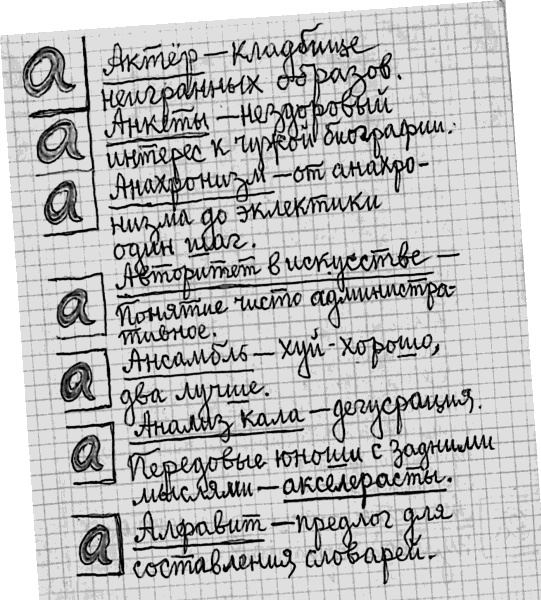 а Актёр — кладбище
неигранных образов.
а Анкеты — нездоровый
интерес к чужой биографии.
а Анахронизм — от анахро-
низма до эклектики
один шаг.
а Авторитет в искусстве —
понятие чисто администра-
тивное.
а Ансамбль — хуй-хорошо,
два лучше.
Анализ кала — дегусрация.
а Передовые юноши с задними
мыслями — акселерасты.
а Алфавит — предлог для
составления словарей.